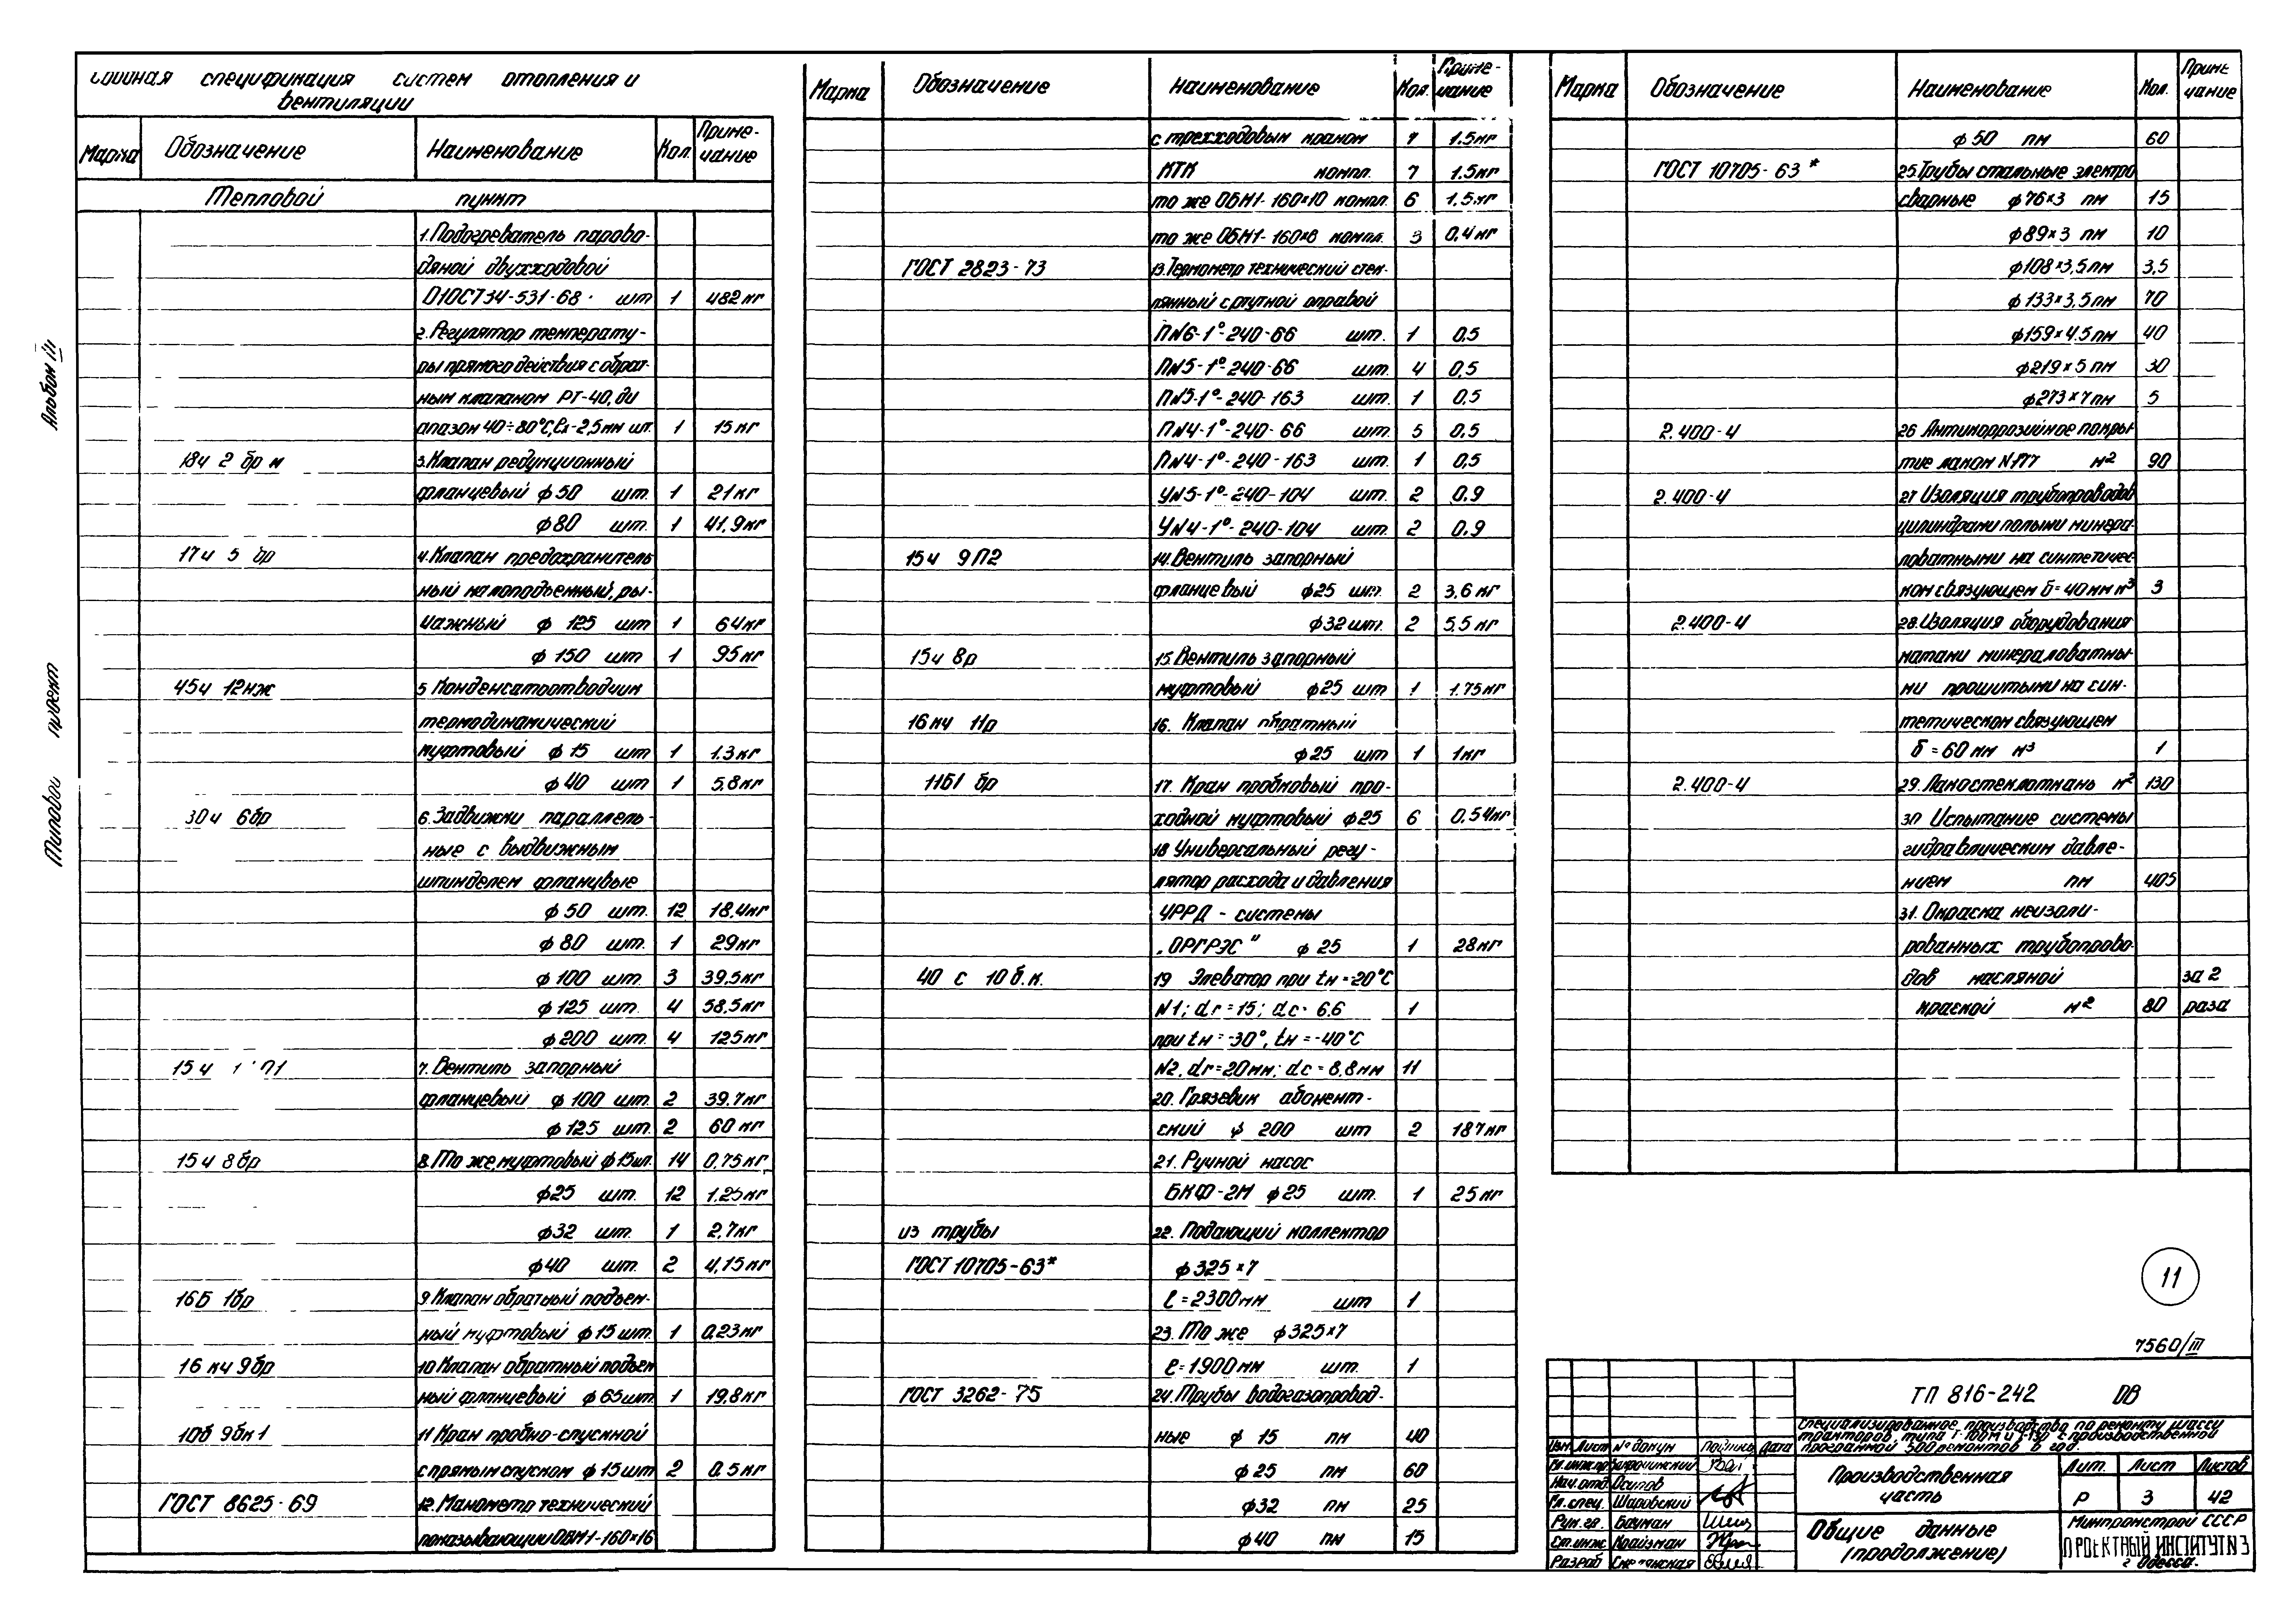 Сводная спецификация систем отопления и
вентиляции
Марка Обозначение Наименование Кол. Приме-
чание
Тепловой пункт
1. Подогреватель парово-
дяной двухходовой
01ОСТ34-531-68 шт 1 482 кг
2. Регулятор температу-
ры прямого действия с обрат-
ным клапаном РТ-40, ди
апазон 40÷80°С, ℓк-2,5мм шт. 1 15 кг
18ч 2 бр м 3. Клапан редукционный
фланцевый ф 50 шт. 1 21 кг
ф 80 шт. 1 41,9 кг
17ч 5 бр 4. Клапан предохранитель
ный малоподъемный, ры-
чажный ф 125 шт 1 64 кг
ф 150 шт 1 95 кг
45ч 12нж 5 Конденсатоотводчик
термодинамический
муфтовый ф 15 шт 1 1.3 кг
ф 40 шт 1 5.8 кг
30ч 6бр 6. Задвижки параллель-
ные с выдвижным
шпинделем фланцвые
ф 50 шт. 12 18,4кг
ф 80 шт. 1 29кг
ф 100 шт. 3 39,5кг
ф 125 шт. 4 58,5кг
ф 200 шт. 4 125кг
15ч 7. Вентиль запорный
фланцевый ф 100 шт. 2 39.7кг
ф 125 шт. 2 60 кг
15ч 8бр 8. То же, муфтовый ф 15шт. 14 0.75 кг
ф25 шт. 12 1.25 кг
ф32 шт. 1 2,7 кг
ф40 шт. 2 4,15 кг
16Б 1бр 9. Клапан обратный подъем-
ный муфтовый ф 15 шт. 1 0,23 кг
16 кч 9бр 10 Клапан обратный подъем
ный фланцевый ф 65 шт 1 19,8 кг
10б 9бк1 11 Кран пробно-спускной
с прямым спуском ф 15 шт 2 0.5 кг
ГОСТ 8625-69 12. Манометр технический
показывающий ОБМ1-160×16
Марка Обозначение Наименование Кол. Приме-
чание
с трехходовым краном 7 1.5кг
КТК компл. 7 1.5кг
то же ОБМ1-160×10 компл. 6 1,5 кг
то же ОБМ1-160×6 компл. 3 0,4 кг
ГОСТ 2823-73 13. Термометр технический стек-
лянный с ртутной оправой
П№6-1°-240-66 шт. 1 0,5
П№5-1°-240-66 шт. 4 0,5
П№5-1°-240-163 шт. 1 0,5
П№4-1°-240-66 шт. 5 0,5
П№4-1°-240-163 шт. 1 0,5
У№5-1°-240-104 шт. 2 0.9
У№4-1°-240-104 шт. 2 0.9
15ч 9П2 14. Вентиль запорный
фланцевый ф25 шт. 2 3,6 кг
ф32 шт. 2 5.5 кг
15ч 8р 15. Вентиль запорный
муфтовый ф25 шт 1 1.75кг
16кч 11р 16. Клапан обратный
ф25 шт 1 1кг
11б1 бр 17. Кран пробковый про-
ходной муфтовый ф 25 6 0.54кг
18 Универсальный регу-
лятор расхода и давления
УРРД - системы
„ОРГРЭС" ф 25 1 28 кг
40 с 10 б.к. 19 Элеватор при tн=-20°С
№1; dг=15; dс= 6.6 1
при tн=-30°, tн=-40°С
№2, dг=20мм; dс=8,8мм 11
20. Грязевик абонент-
ский ф 200 шт 2 187 кг
21. Ручной насос
БКФ-2М ф 25 шт. 1 25 кг
из трубы 22. Подающий коллектор
ГОСТ 10705-63* ф 325×7
ℓ=2300мм шт 1
23. То же ф 325×7
ℓ=1900 мм шт. 1
ГОСТ 3262-75 24. Трубы водогазопровод-
ные ф 15 пм 40
ф 25 пм 60
ф32 пм 25
ф 40 пм 15
Марка Обозначение Наименование Кол. Приме
чание
ф 50 пм 60
ГОСТ 10705-63* 25. Трубы стальные электро
сварные ф 76×3 пм 15
ф89×3 пм 10
ф108×3,5 пм 3,5
ф 133×3,5 пм 70
ф159×4.5 пм 40
ф219×5 пм 30
ф273×7 пм 5
2.400-4 26 Антикоррозийное покры-
тие лаком №177 м² 90
2.400-4 27 Изоляция трубопроводов
цилиндрами полыми минера-
ловатными на синтетичес-
ком связующем δ=40мм м³ 3
2.400-4 28. Изоляция оборудования
матами минераловатны-
ми прошитыми на син-
тетическом связующем
δ=60мм м³ 1
2.400-4 29. Лакостеклоткань м² 130
30 Испытание системы
гидравлическим давле-
нием пм 405
31. Окраска неизоли-
рованных трубопрово-
дов масляной за 2
краской м² 80 раза
Альбом III
Типовой проект
11
7560/III
ТП 816-242 ОВ
Специализированное производство по ремонту шасси
тракторов типа Т-100М и Т-130 с производственной
программой 500 ремонтов в год.
Изм. Лист № докум Подпись Дата
Гл. инж. пр.
Нач. отд. Осипов
Гл. спец. Шаровский
Рук. гр. Бауман
Ст. инж Крайзман
Разраб
Производственная
часть
Лит. Лист Листов
Р 3 42
Общие данные
(продолжение)
Минпромстрой СССР
ПРОЕКТНЫЙ ИНСТИТУТ №3
г Одесса.